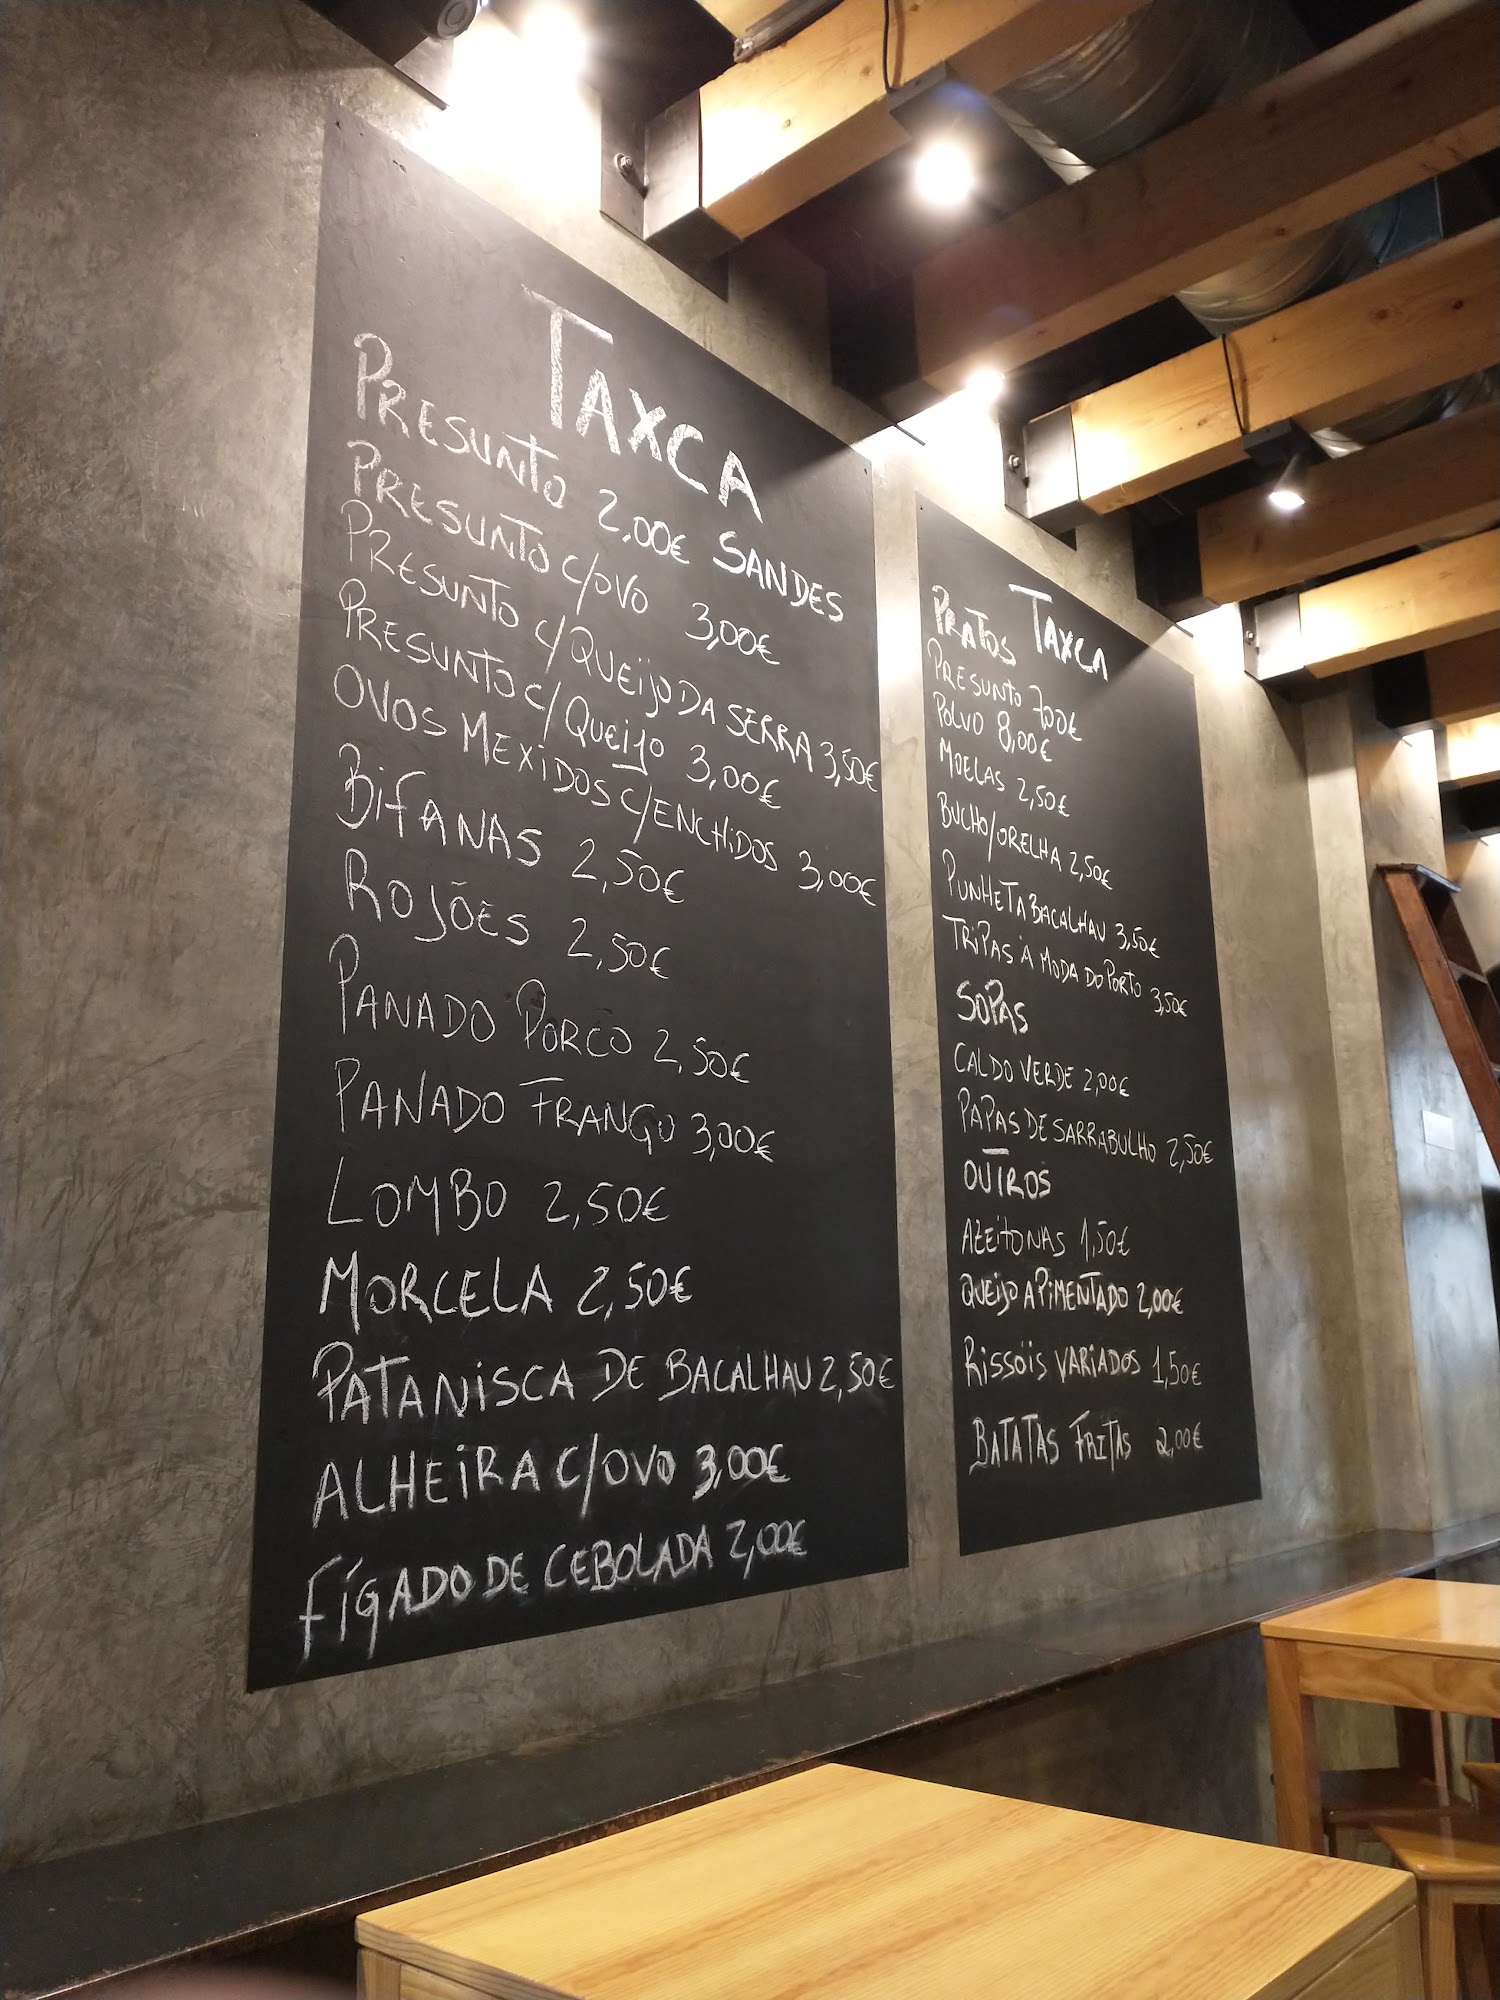 TAXCA
SANDES
PRESUNTO 2,00€
PRESUNTO C/OVO 3,00€
PRESUNTO C/QUEIJO DA SERRA 3,50€
PRESUNTO C/QUEIJO 3,00€
OVOS MEXIDOS C/ENCHIDOS 3,00€
BIFANAS 2,50€
ROJÕES 2,50€
PANADO PORCO 2,50€
PANADO FRANGO 3,00€
LOMBO 2,50€
MORCELA 2,50€
PATANISCA DE BACALHAU 2,50€
ALHEIRA C/OVO 3,00€
FÍGADO DE CEBOLADA 2,00€
TAXCA
PRATOS
PRESUNTO 7,00€
POLVO 8,00€
MOELAS 2,50€
BUCHO/ORELHA 2,50€
PUNHETA BACALHAU 3,50€
TRIPAS À MODA DO PORTO 3,50€
SOPAS
CALDO VERDE 2,00€
PAPAS DE SARRABULHO 2,50€
OUTROS
AZEITONAS 1,50€
QUEIJO APIMENTADO 2,00€
RISSÓIS VARIADOS 1,50€
BATATAS FRITAS 2,00€